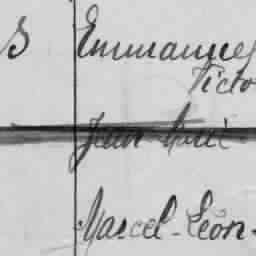 s Emmanuel
Victo
Jean Marie
Marcel-Léon-